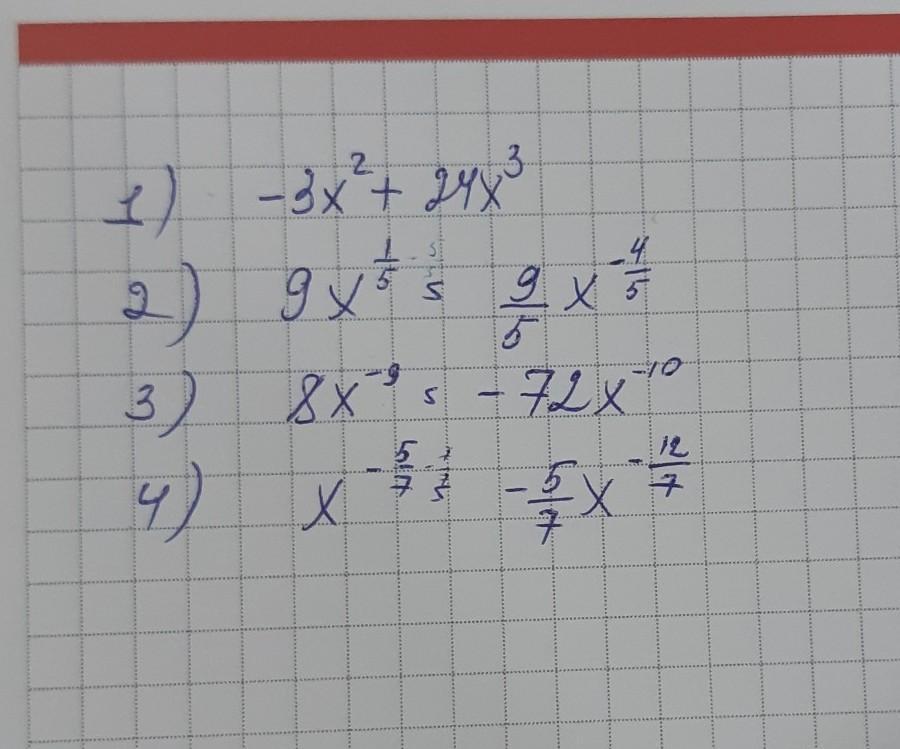 1) -3x² + 24x³
2) 9x^{1/5} = 9/5 x^{-4/5}
3) 8x⁻⁹ = -72x⁻¹⁰
4) x^{-5/7} = -5/7 x^{-12/7}